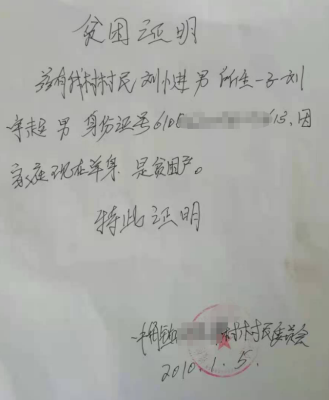 贫困证明
兹有我村村民刘小进 男 所生一子刘
宇超 男 身份证号610 613,因
家庭现在单亲 是贫困户。
特此证明
村村民委员会
2010.1.5.